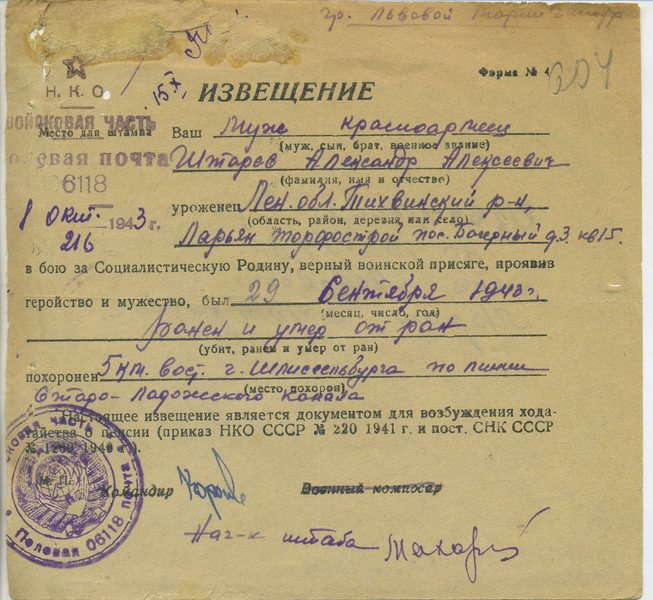 гр. Львовой Марии
Форма № 4
204
Н. К. О.
15.X
ИЗВЕЩЕНИЕ
ВОЙСКОВАЯ ЧАСТЬ
Место для штампа
Ваш муж красноармеец
(муж, сын, брат, военное звание)
полевая почта
6118
Александр Алексеевич
(фамилия, имя и отчество)
1 Окт. 1943 г.
216
уроженец Лен. обл. Тихвинский р-н,
(область, район, деревня или село)
Ларьян торфострой пос. д.3. кв 15.
в бою за Социалистическую Родину, верный воинской присяге, проявив
геройство и мужество, был 29 Сентября 1943 г.
(месяц, число, год)
ранен и умер от ран
(убит, ранен и умер от ран)
похоронен 5 км. вост. г. Шлиссельбурга по линии
(место похорон)
Старо-Ладожского канала
Настоящее извещение является документом для возбуждения хода-
тайства о пенсии (приказ НКО СССР № 220 1941 г. и пост. СНК СССР
№ 1269 1940 г.).
М. П.
Командир
Военный комиссар
Нач-к штаба
Войсковая часть Полевая почта 06118